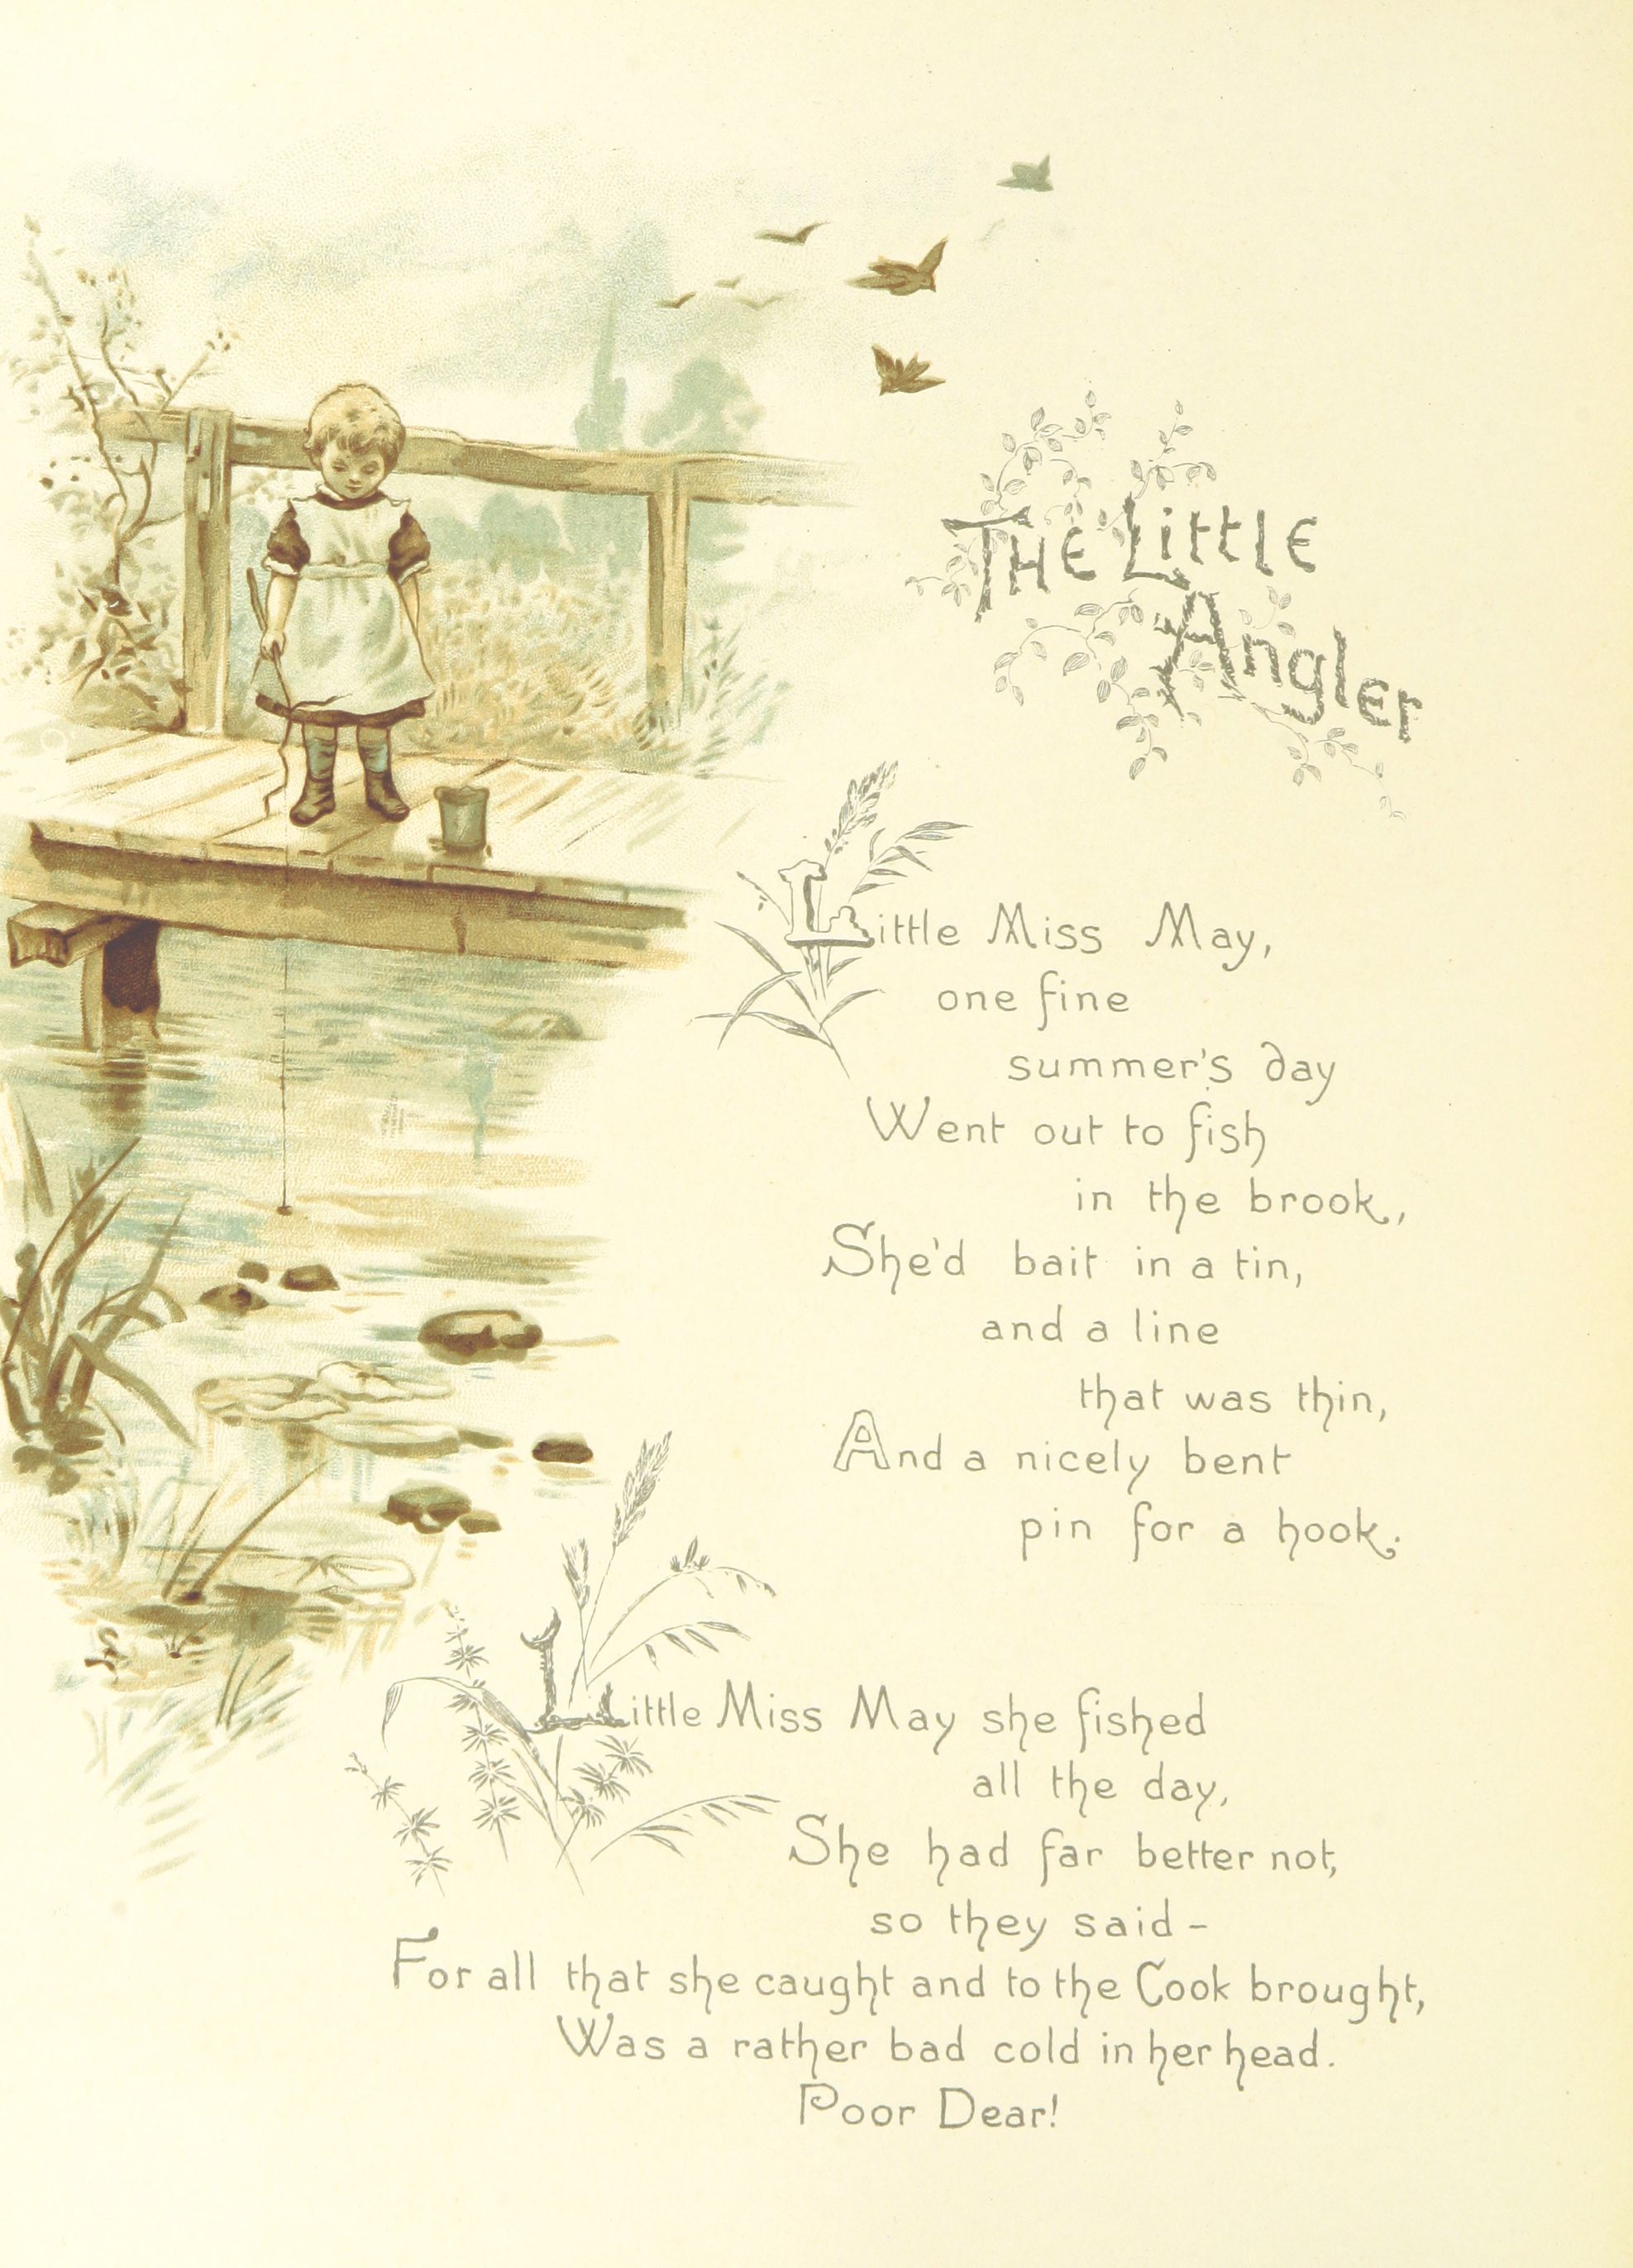 The Little
Angler
Little Miss May,
one fine
summer's day
Went out to fish
in the brook,
She'd bait in a tin,
and a line
that was thin,
And a nicely bent
pin for a hook.
Little Miss May she fished
all the day,
She had far better not,
so they said -
For all that she caught and to the Cook brought,
Was a rather bad cold in her head.
Poor Dear!